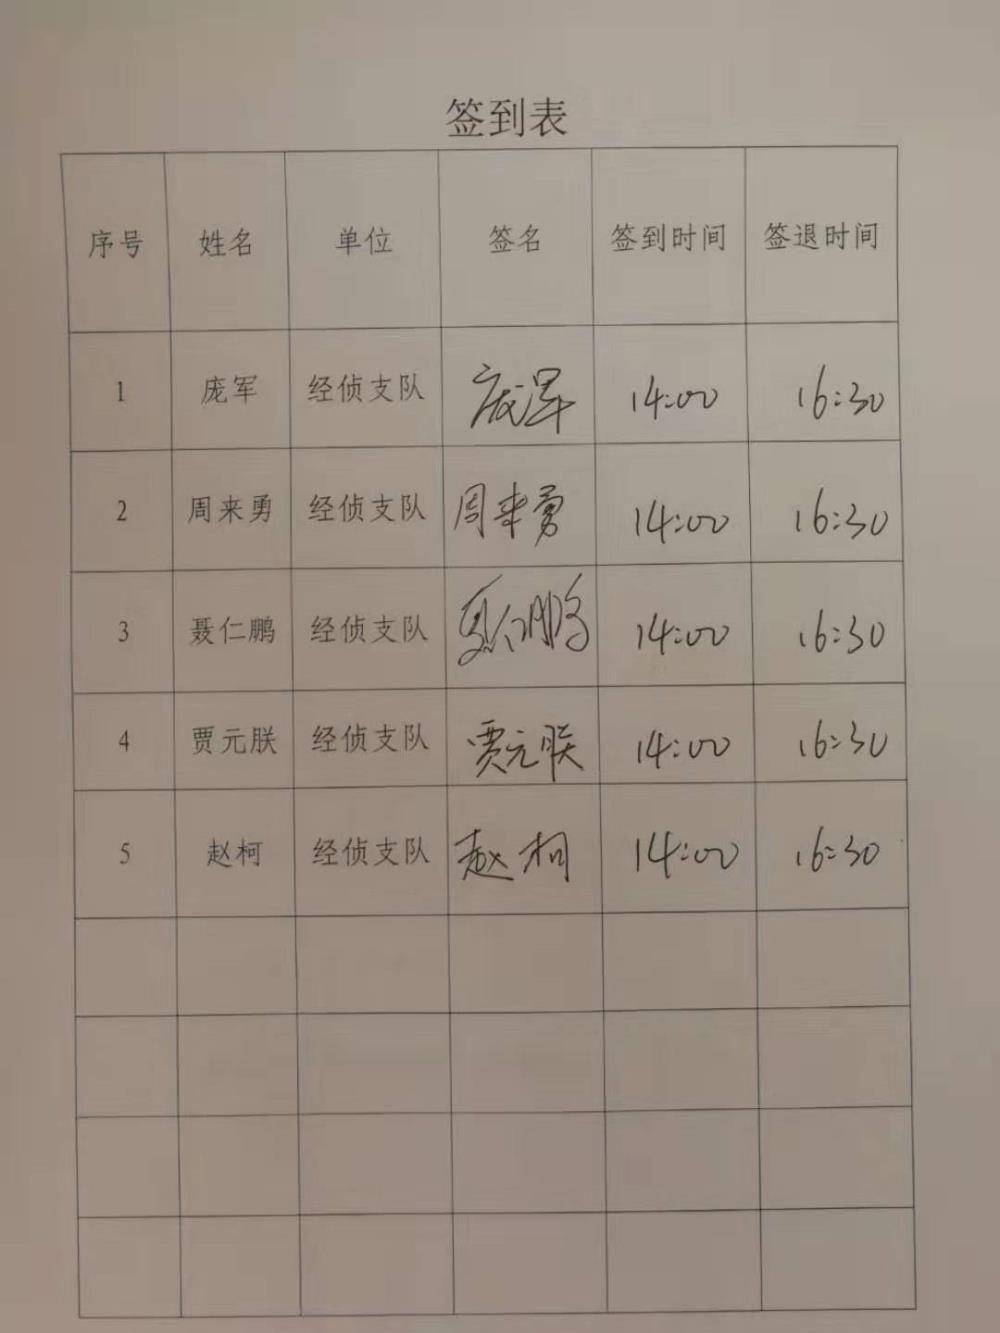 签到表
序号 姓名 单位 签名 签到时间 签退时间
1 庞军 经侦支队 庞军 14:00 16:30
2 周来勇 经侦支队 周来勇 14:00 16:30
3 聂仁鹏 经侦支队 聂仁鹏 14:00 16:30
4 贾元朕 经侦支队 贾元朕 14:00 16:30
5 赵柯 经侦支队 赵柯 14:00 16:30